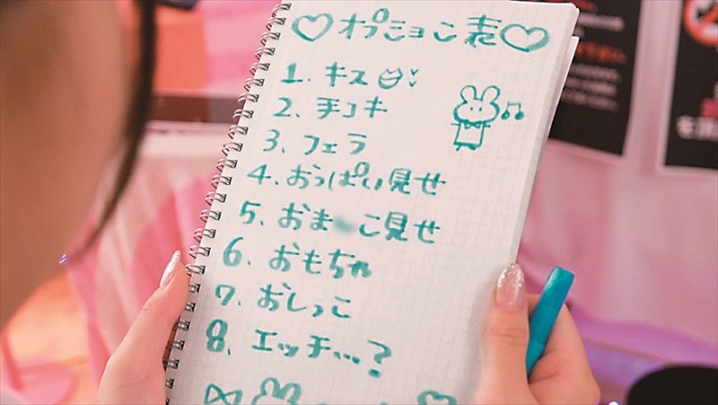 ♡オプション表♡
1. キス
2. 手コキ
3. フェラ
4. おっぱい見せ
5. おま こ見せ
6. おもちゃ
7. おしっこ
8. エッチ…?